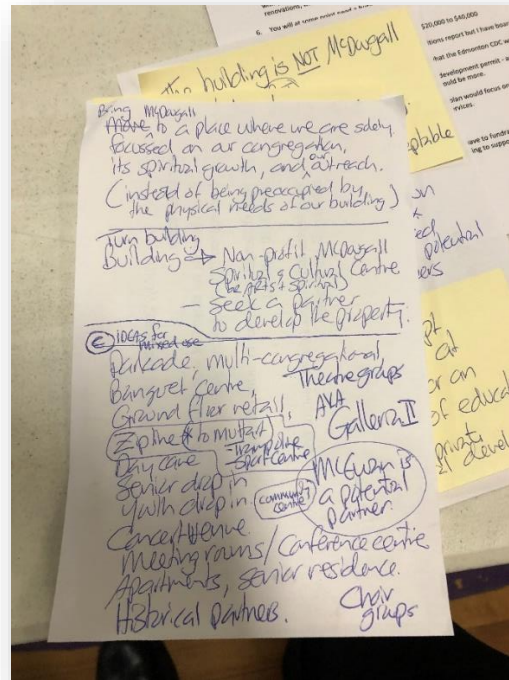 renovations,
6. You will at some point need a
$20,000 to $40,000
itions report but I have
that the Edmonton CDC
development permit -
ould be more.
plan would focus on
rvices.
The building is NOT McDougall
eptable
to fundra
ing to suppo
Bring McDougall
Move to a place where we are solely
focussed on our congregation,
its spiritual growth, and our outreach.
(instead of being preoccupied by
the physical needs of our building)
Turn building
Building → Non-profit, McDougall
Spiritual & Cultural Centre
(the ARTS & Spiritual)
- Seek a partner
to develop the property.
C IDEAS for mixed use
Parkade, multi-congregational,
Banquet centre, Theatre groups
Ground floor retail, AKA
Galleria II
Zipline (to Muttart)
- Trampoline
Sport Centre
Day care
Senior drop in
Youth drop in (community centre)
McEwan is
a potential
partner.
Concert venue
Meeting rooms / Conference centre
Apartments, senior residence.
Historical partners.
Choir
groups
potential
at
or an
of educa
private
devel